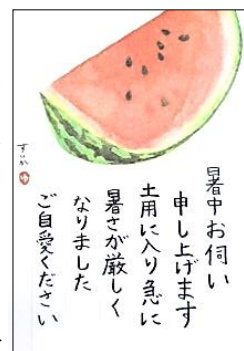 暑中お伺い
申し上げます
土用に入り急に
暑さが厳しく
なりました
ご自愛ください
すいか